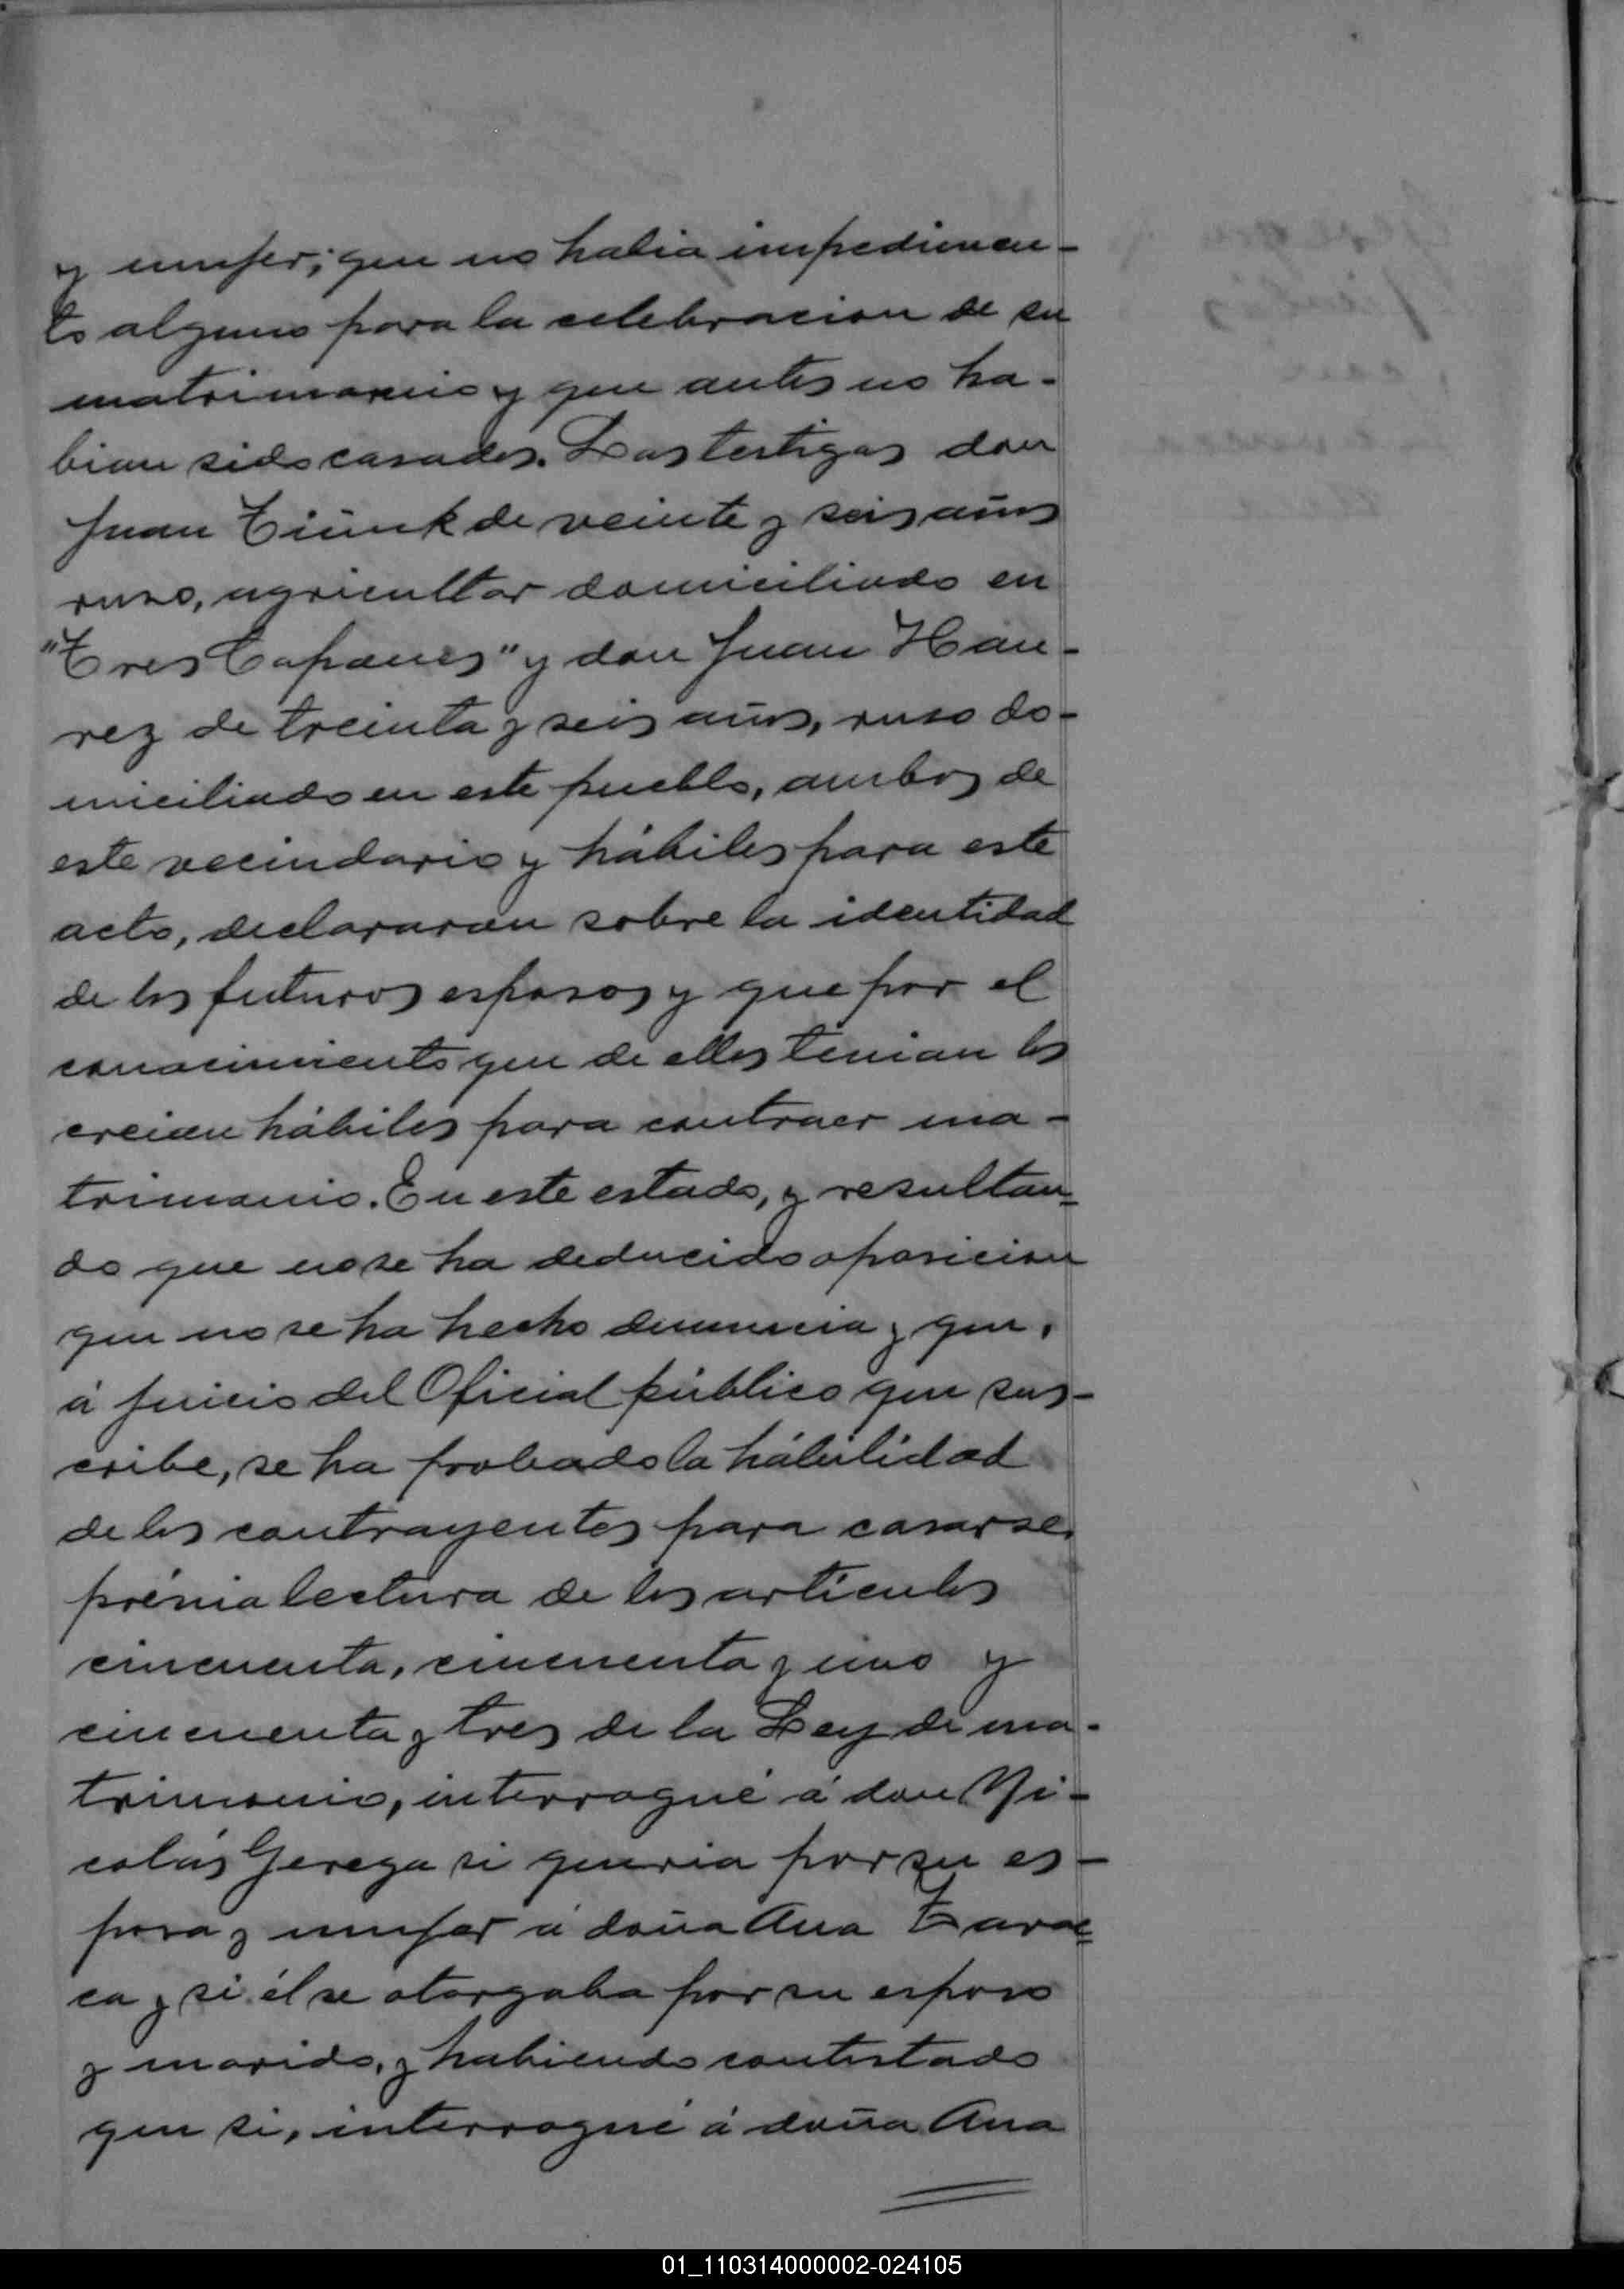 y mujer; que no habia impedimen-
to alguno para la celebracion de su
matrimonio y que antes no ha-
bian sido casados. Los testigos don
Juan Tiunk de veinte y seis años
ruso, agricultor domiciliado en
"Tres Capones" y don Juan Han-
rez de treinta y seis años, ruso do-
miciliado en este pueblo, ambos de
este vecindario y hábiles para este
acto, declararon sobre la identidad
de los futuros esposos y que por el
conocimiento que de ellos tenian los
creian hábiles para contraer ma-
trimonio. En este estado, y resultan-
do que no se ha deducido oposicion
que no se ha hecho denuncia y que,
á juicio del Oficial público que sus-
cribe, se ha probado la hábilidad
de los contrayentes para casarse,
prévia lectura de los artículos
cincuenta, cincuenta y uno y
cincuenta y tres de la Ley de ma-
trimonio, interrogué á don Ni-
colás Gerega si queria por su es-
posa y mujer á doña Ana Zara-
ca y si él se otorgaba por su esposo
y marido, y habiendo contestado
que si, interrogué á doña Ana
01_110314000002-024105